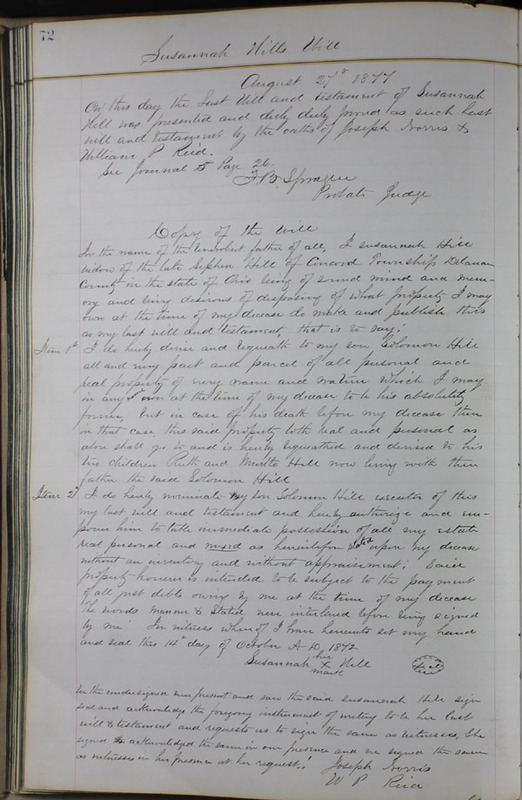 72
Susannah Hills Will
August 27th 1877
On this day the Last Will and testament of Susannah
Hill was presented and duly duly proved as such last
will and testament by the oaths of Joseph Norris &
William P Reid.
See Journal 5 Page 26.
F. B. Sprague
Probate Judge
Copy of the will
In the name of the Benevolent father of all, I Susannah Hill
widow of the late Stephen Hill of Concord Township Delaware
County in the state of Ohio being of sound mind and mem-
ory and being desirous of disposing of what property I may
own at the time of my decease do make and publish this
as my last will and testament, that is to say:
Item 1st I do hereby devise and bequeath to my son Solomon Hill
all and every part and parcel of all personal and
real property of every name and nature which I may
in any own at the time of my decease to be his absolutely
forever, but in case of his death before my decease then
in that case this said property both real and personal as
above shall go to and is hereby bequeathed and devised to his
two children Ruth and Hill now living with their
father the said Solomon Hill
Item 2d I do hereby nominate my son Solomon Hill executor of this
my last will and testament and hereby authorize and em-
power him to take immediate possession of all my estate
real personal and mixed as hereinbefore stated upon my decease
without an inventory and without appraisement: Said
property however is intended to be subject to the payment
of all just debts owing by me at the time of my decease
The words manner & Stated were interlined before being signed
by me. In witness whereof I have hereunto set my hand
and seal this 14th day of October A.D. 1872
Susannah her X mark Hill Seal
We the undersigned were present and saw the said Susannah Hill sign
seal and acknowledge the foregoing instrument of writing to be her last
will & testament and requests us to sign the same as witnesses, She
signed & acknowledged the same in our presence and we signed the same
as witnesses in her presence at her request.
Joseph Norris
W P Reid